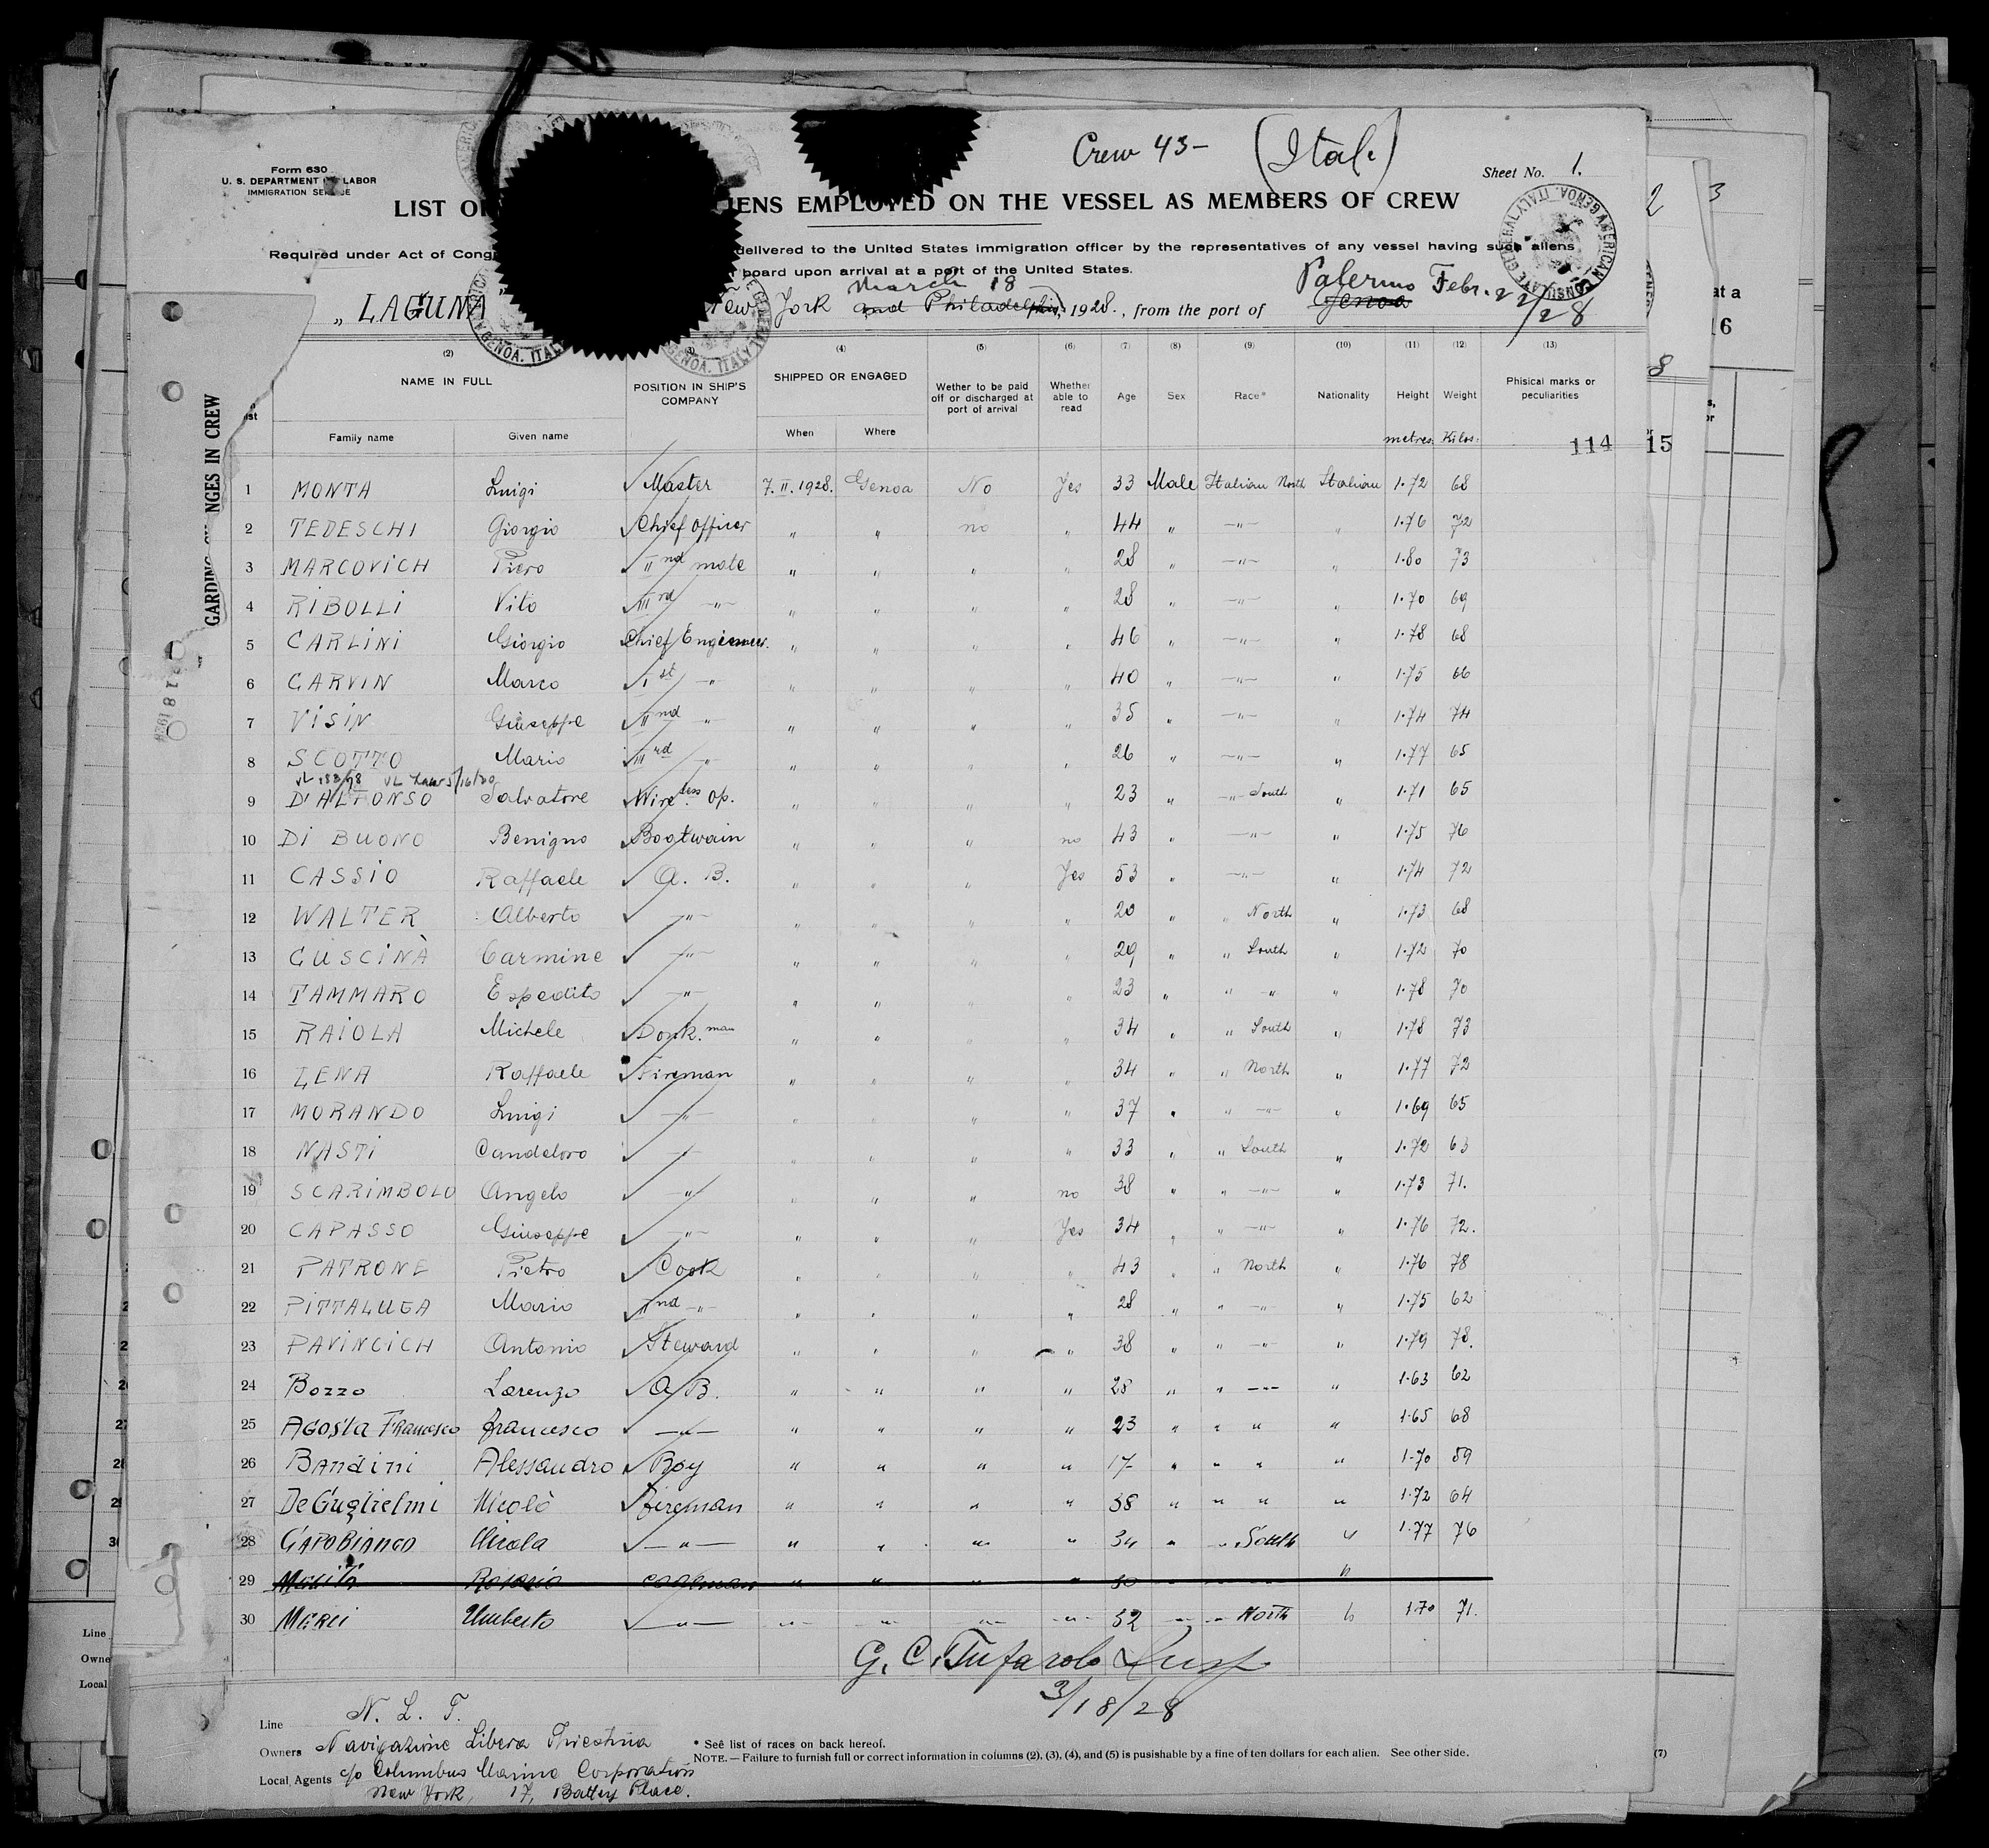 Crew 43- (Ital.)
Form 630
U. S. DEPARTMENT LABOR
IMMIGRATION
Sheet No. 1.
LIST O IENS EMPLOYED ON THE VESSEL AS MEMBERS OF CREW
Required under Act of Cong delivered to the United States immigration officer by the representatives of any vessel having such aliens
board upon arrival at a port of the United States.
March 18 Palermo Febr. 22/28
„ LAGUNA " New York and Philadelphia, 1928., from the port of Genoa
AMERICAN CONSULATE GENERAL GENOA, ITALY.
GENOA. ITALY
GENOA. ITALY
(2) (3) (4) (5) (6) (7) (8) (9) (10) (11) (12) (13)
NAME IN FULL POSITION IN SHIP'S COMPANY SHIPPED OR ENGAGED Wether to be paid off or discharged at port of arrival Whether able to read Age Sex Race* Nationality Height Weight Phisical marks or peculiarities
Family name Given name When Where metres. Kilos.
114 15
NGES IN CREW
1 MONTA Luigi Master 7.II.1928. Genoa No Yes 33 Male Italian North Italian 1.72 68
2 TEDESCHI Giorgio Chief Officer „ „ no „ 44 „ —„— „ 1.76 72
3 MARCOVICH Piero IInd mate „ „ „ „ 28 „ —„— „ 1.80 73
4 RIBOLLI Vito IIIrd —„— „ „ „ „ 28 „ —„— „ 1.70 69
5 CARLINI Giorgio Chief Engineer. „ „ „ „ 46 „ —„— „ 1.78 68
6 GARVIN Marco Ist —„ „ „ „ „ 40 „ —„— „ 1.75 66
7 VISIN Giuseppe IInd „ „ „ „ „ 35 „ —„— „ 1.74 74
8 SCOTTO Mario IIIrd —„ „ „ „ „ 26 „ —„— „ 1.77 65
9 D'ALFONSO Salvatore Wireless Op. „ „ „ „ 23 „ —„— South „ 1.71 65
10 DI BUONO Benigno Boatwain „ „ „ no 43 „ —„— „ 1.75 76
11 CASSIO Raffaele A. B. „ „ „ Yes 53 „ —„— „ 1.74 72
12 WALTER Alberto —„— „ „ „ „ 20 „ „ North „ 1.73 68
13 CUSCINÀ Carmine —„— „ „ „ „ 29 „ „ South „ 1.72 70
14 TAMMARO Espedito —„— „ „ „ „ 23 „ „ —„ „ 1.78 70
15 RAIOLA Michele Donk.man „ „ „ „ 34 „ „ South „ 1.78 73
16 ZENA Raffaele Fireman „ „ „ „ 34 „ „ North „ 1.77 72
17 MORANDO Luigi —„— „ „ „ „ 37 „ „ —„— „ 1.69 65
18 NASTI Candeloro —„— „ „ „ „ 33 „ „ South „ 1.72 63
19 SCARIMBOLO Angelo —„— „ „ „ no 38 „ „ —„— „ 1.73 71.
20 CAPASSO Giuseppe —„— „ „ „ Yes 34 „ „ —„— „ 1.76 72.
21 PATRONE Pietro Cook „ „ „ „ 43 „ „ North „ 1.76 78
22 PITTALUGA Mario IInd —„— „ „ „ „ 28 „ „ —„ „ 1.75 62
23 PAVINCICH Antonio Steward „ „ „ „ 38 „ „ —„ „ 1.79 78.
24 Bozzo Lorenzo A B. „ „ „ „ 28 „ „ --- „ 1.63 62
25 Agosta Francesco Francesco —„— „ „ „ „ 23 „ „ „ „ 1.65 68
26 Bandini Alessandro Boy „ „ „ „ 17 „ „ „ „ 1.70 59
27 De Guglielmi Nicolò Fireman „ „ „ „ 38 „ „ „ „ 1.72 64
28 CAPOBIANCO Nicola —„— „ „ „ „ 34 „ „ South „ 1.77 76
29 Rosario coalman „ „ „ „ 30 „
30 Merci Umberto —„— „ „ „ „ 32 „ „ North „ 1.70 71.
G. C. Tufarolo Insp
3/18/28
Line N. L. T.
Owners Navigazione Libera Triestina
Local Agents c/o Columbus Marine Corporation
New York, 17, Battery Place.
* See list of races on back hereof.
NOTE. — Failure to furnish full or correct information in columns (2), (3), (4), and (5) is pusishable by a fine of ten dollars for each alien. See other side.